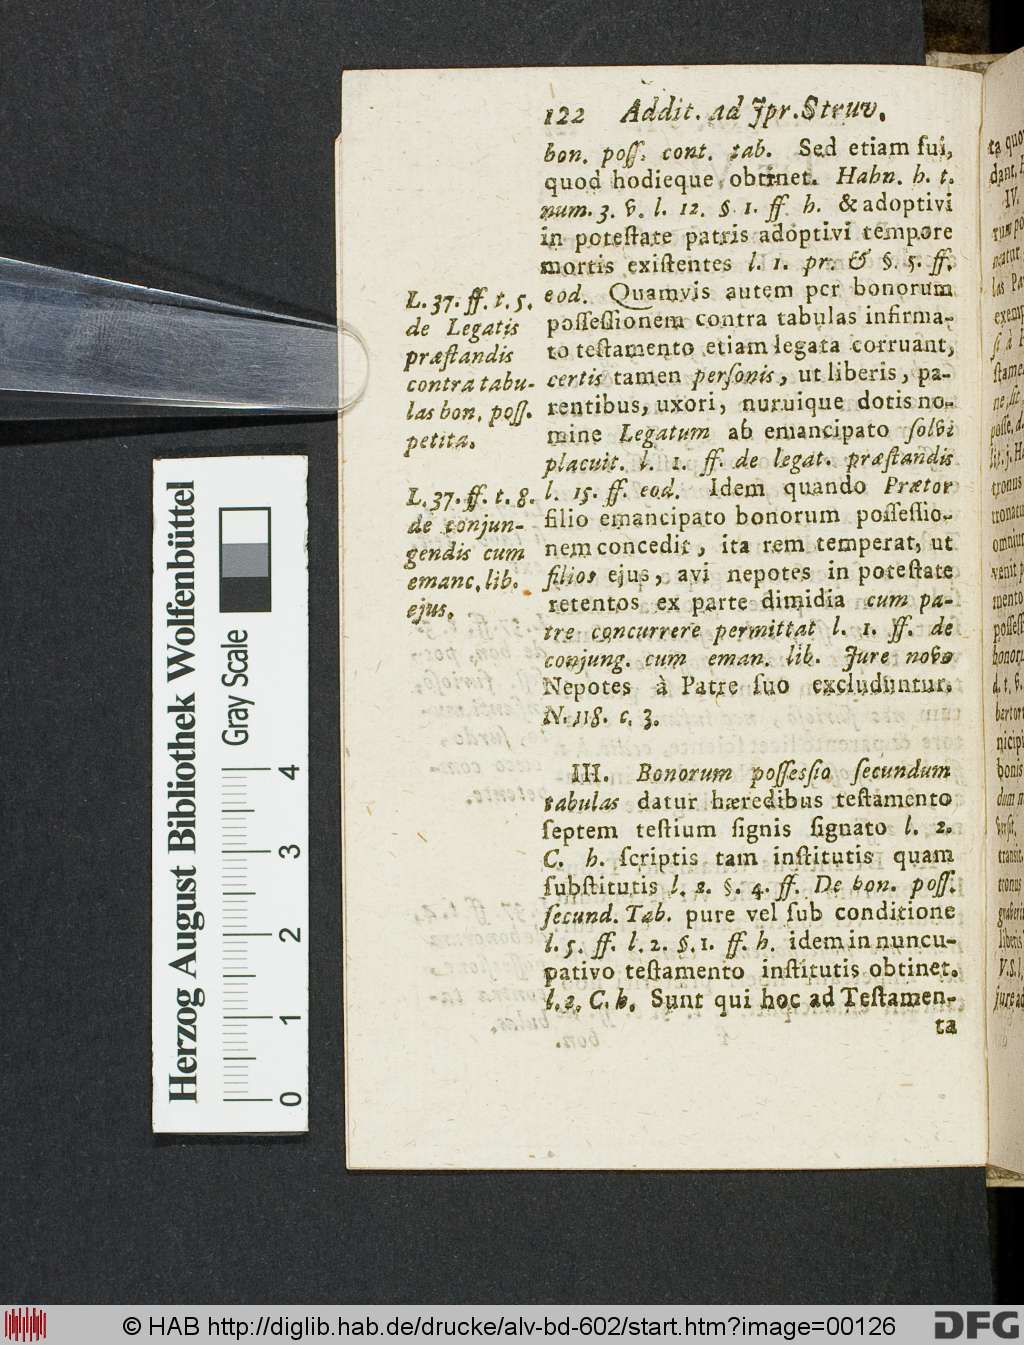 122 Addit. ad Jpr. Struv.
bon. poſſ. cont. tab. Sed etiam ſui,
quod hodieque obtinet. Hahn. h. t.
num. 3. v. l. 12. § 1. ff h. & adoptivi
in poteſtate patris adoptivi tempore
mortis exiſtentes l. 1. pr. & §. 5. ff.
eod. Quamvis autem per bonorum
poſſeſſionem contra tabulas infirma-
to teſtamento etiam legata corruant,
certis tamen perſonis, ut liberis, pa-
rentibus, uxori, nuruique dotis no-
mine Legatum ab emancipato ſolvi
placuit. l. 1. ff. de legat. præſtandis
l. 15. ff. eod. Idem quando Prætor
filio emancipato bonorum poſſeſſio-
nem concedit, ita rem temperat, ut
filios ejus, avi nepotes in poteſtate
retentos ex parte dimidia cum pa-
tre concurrere permittat l. 1. ff. de
conjung. cum eman. lib. Jure novo
Nepotes à Patre ſuo excluduntur.
N. 118. c. 3.
L. 37. ff. t. 5.
de Legatis
præſtandis
contra tabu-
las bon. poſſ.
petita.
L. 37. ff. t. 8.
de conjun-
gendis cum
emanc. lib.
ejus.
III. Bonorum poſſeſſio ſecundum
tabulas datur hæredibus teſtamento
ſeptem teſtium ſignis ſignato l. 2.
C. h. ſcriptis tam inſtitutis quam
ſubſtitutis l. 2. §. 4. ff. De bon. poſſ.
ſecund. Tab. pure vel ſub conditione
l. 5. ff. l. 2. §. 1. ff. h. idem in nuncu-
pativo teſtamento inſtitutis obtinet.
l. 2. C. h. Sunt qui hoc ad Teſtamen-
ta
Herzog August Bibliothek Wolfenbüttel
Gray Scale
0 1 2 3 4
© HAB http://diglib.hab.de/drucke/alv-bd-602/start.htm?image=00126
DFG